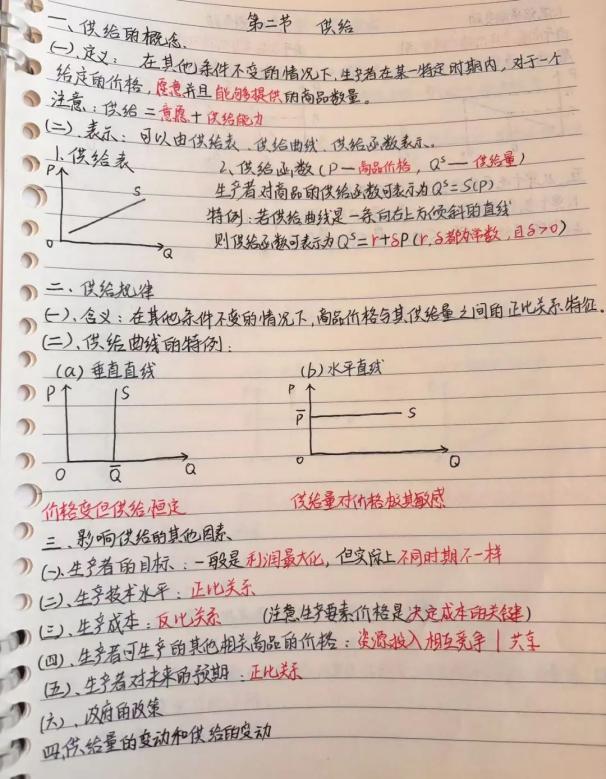 第二节 供给
一、供给的概念.
(一).定义: 在其他条件不变的情况下,生产者在某一特定时期内,对于一个
给定的价格,愿意并且能够提供的商品数量。
注意:供给=意愿+供给能力
(二).表示:可以由供给表、供给曲线、供给函数表示.
1.供给表
2、供给函数(P—商品价格,Qˢ—供给量)
生产者对商品的供给函数可表示为Qˢ=S(P)
特例:若供给曲线是一条向右上方倾斜的直线
则供给函数可表示为Qˢ=r+δP(r,δ都为常数,且δ>0)
P
S
O
Q
二、供给规律
(一).含义:在其他条件不变的情况下,商品价格与其供给量之间的正比关系特征.
(二).供给曲线的特例:
(a)垂直直线
(b)水平直线
P
S
O
Q̄
Q
P
P̄
S
O
Q
价格变但供给恒定
供给量对价格极其敏感
三、影响供给的其他因素
(一).生产者的目标:一般是利润最大化,但实际上不同时期不一样
(二)、生产技术水平:正比关系
(三)、生产成本:反比关系 (注意生产要素价格是决定成本的关键)
(四)、生产者可生产的其他相关商品的价格:资源投入相互竞争|共享
(五)、生产者对未来的预期:正比关系
(六)、政府的政策
四.供给量的变动和供给的变动